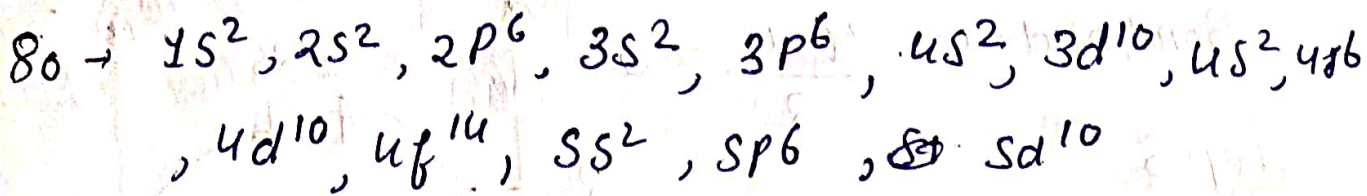 80 → 1s², 2s², 2p⁶, 3s², 3p⁶, 4s², 3d¹⁰, 4s², 4p⁶
, 4d¹⁰, 4f¹⁴, 5s², 5p⁶, 5d¹⁰